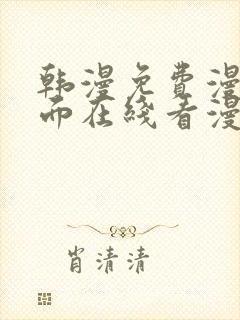 韩漫免费漫
而在线看漫
肖清清